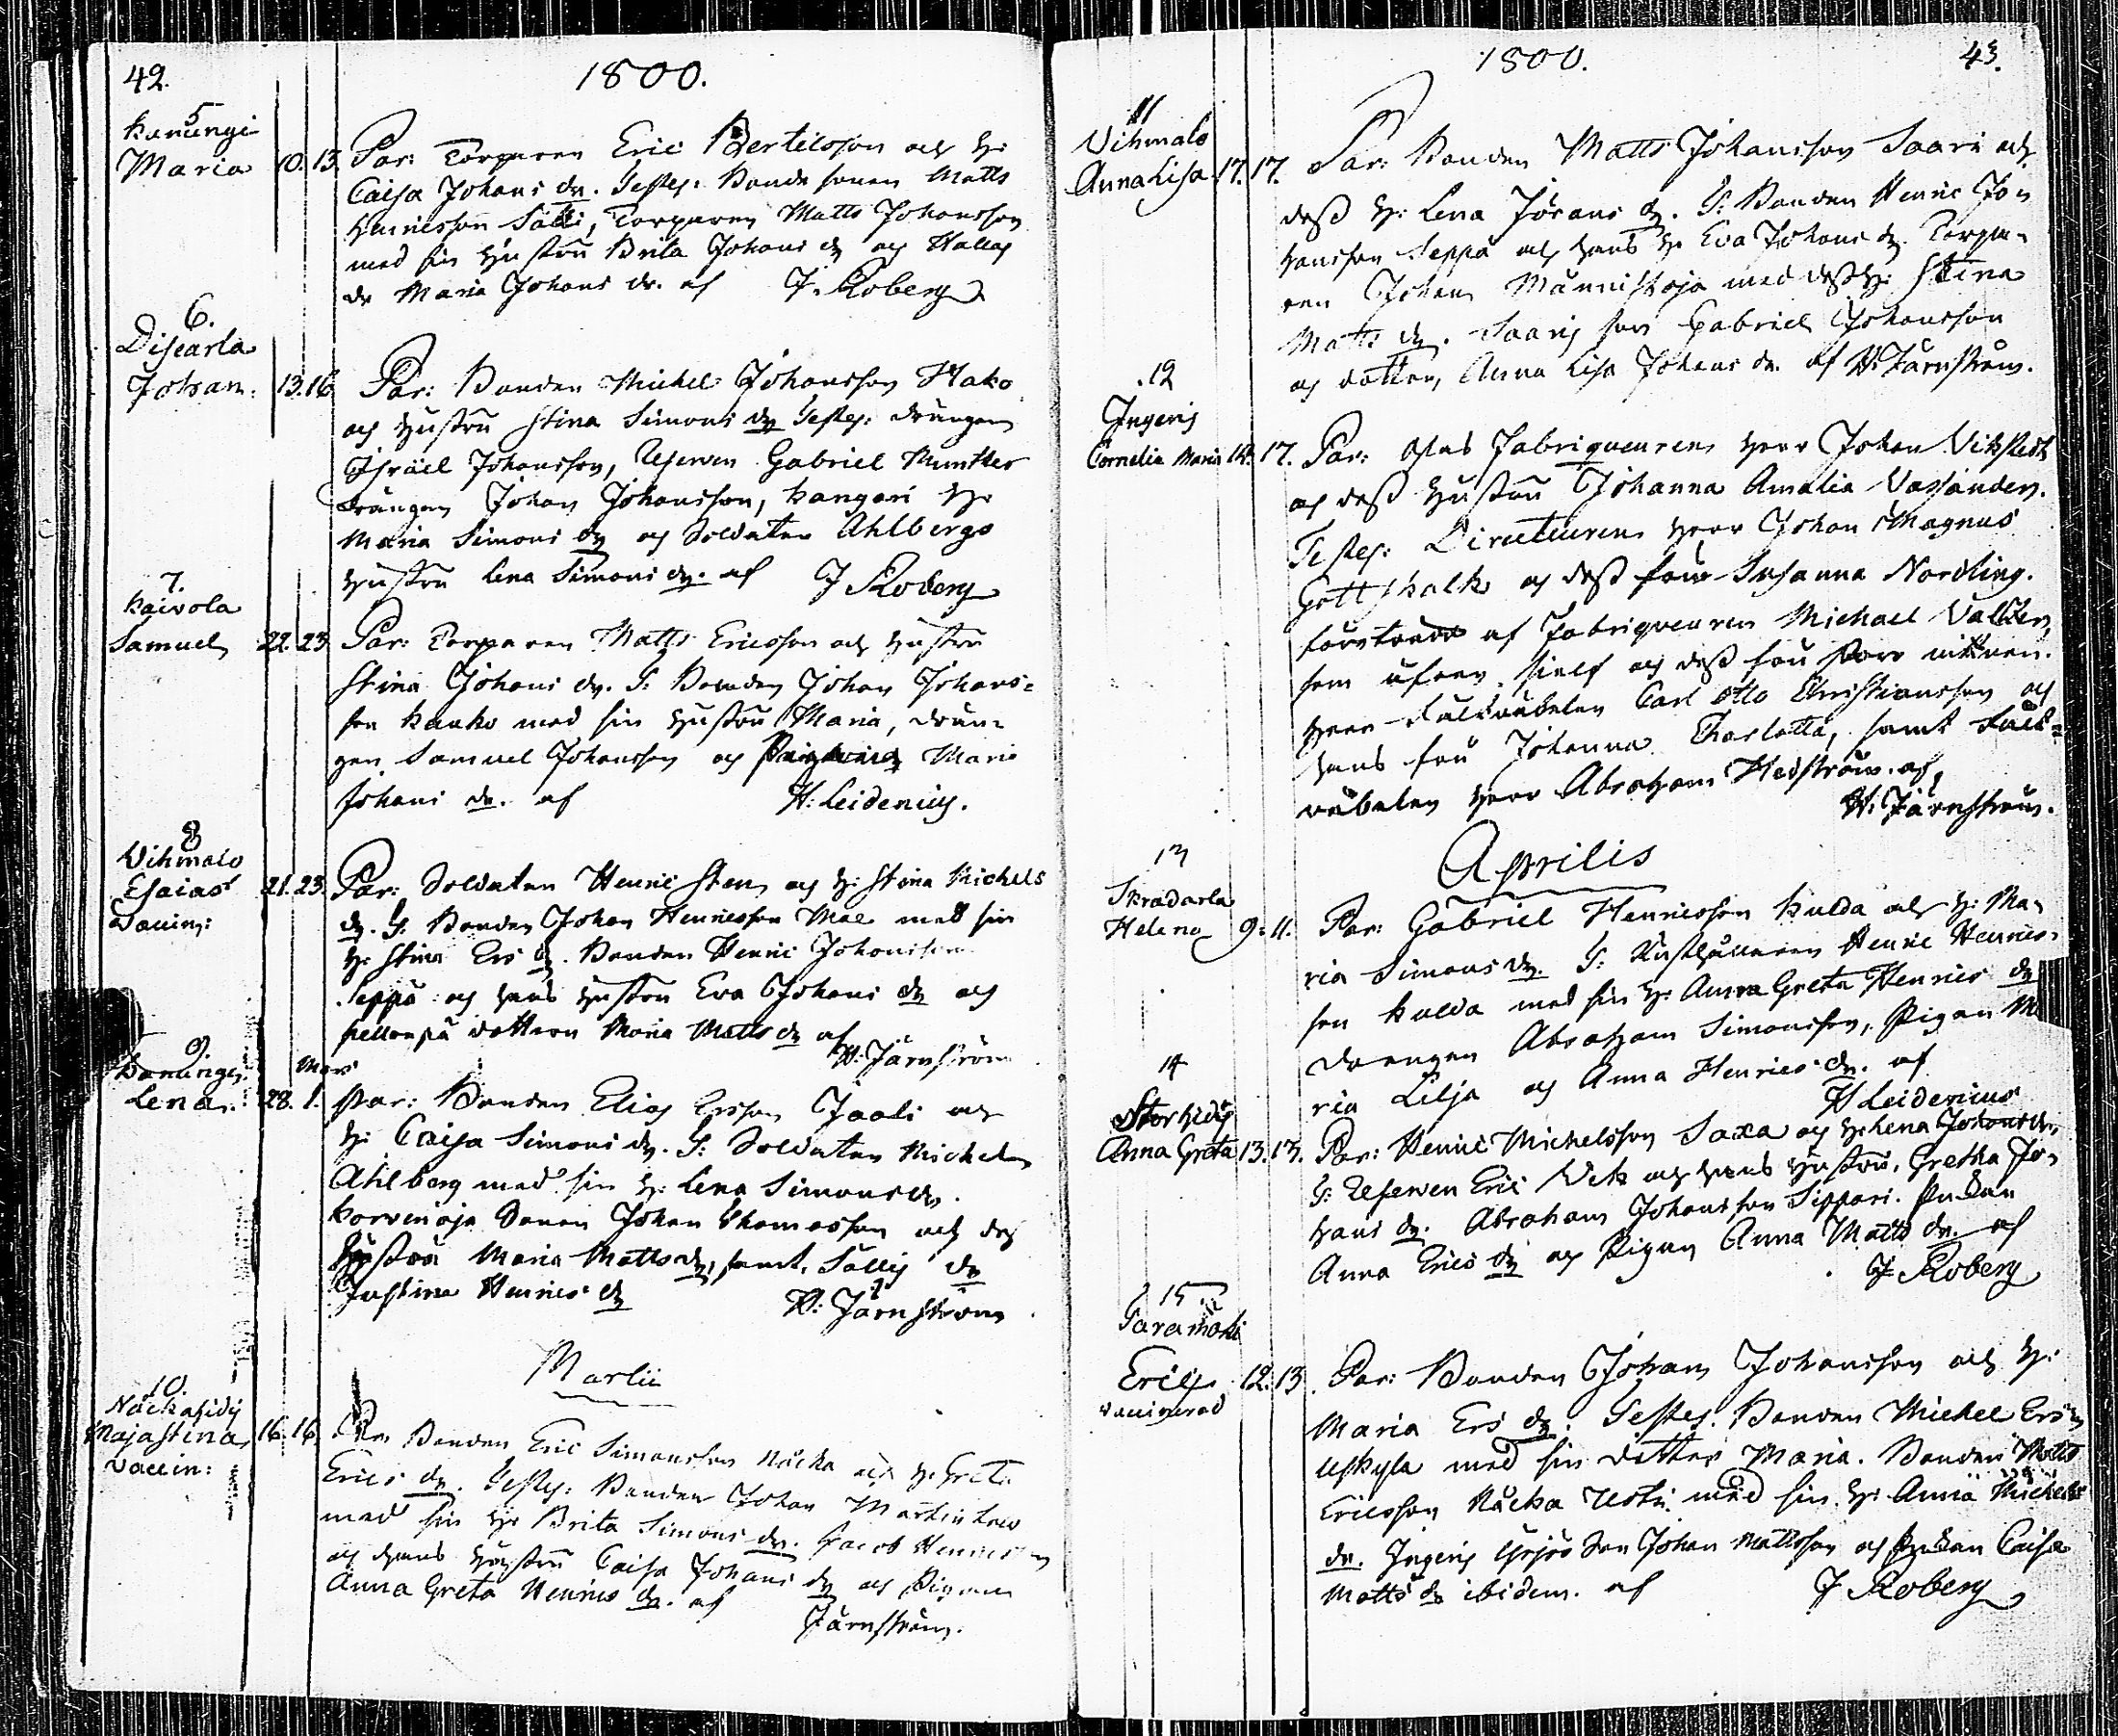 42.
1800.
5
Kanungi
Maria 10. 13. Par: Torparen Eric Bertilsson och H:
Caisa Johans dr. Testes: Bonde sonen Matts
Henricsson Sälli, Torparen Matts Johansson
med sin Hustru Brita Johans dr och
dr Maria Johans dr. af J. Roberg
6.
Discarla
Johan. 13. 16. Par: Bonden Michel Johansson Hako
och Hustru Stina Simons dr Testes: Drängen
Israël Johansson, Gabriel Munther
Drängen Johan Johansson, Kangari H:
Maria Simons dr och Soldaten Ahlbergs
Hustru Lena Simons dr. af J Roberg
7.
Kaivola
Samuel 22. 23. Par: Torparen Matts Ericsson och Hustru
Stina Johans dr. T: Bonden Johan Johans=
son Kauko med sin Hustru Maria, Drän=
gen Samuel Johansson och Maria
Johans dr. af H: Leidenius.
8
Vihmalo
Esaias 21. 23. Par: Soldaten Henric Sten och H: Stina Michels
Vaccin: dr. T: Bonden Johan Henricsson Mae med sin
H: Stina Ers dr. Bonden Henric Johansson
Seppä och hans Hustru Eva Johans dr och
dottern Maria Matts dr af
H: Järnström
9.
Kanungi Mars
Lena. 28. 1. Par: Bonden Elias Ersson Jaali och
H: Caisa Simons dr. T: Soldaten Michel
Ahlberg med sin H: Lena Simons dr.
Korvenoja Sonen Johan Thomasson och dess
Hustru Maria Matts dr, samt Sällis dr
Justina Henrics dr H: Järnström
Martii
10.
Näckäsidi
Maja Stina 16. 16. Par: Bonden Eric Simonsson Näcka och H: Greta
Vaccin: Erics dr. Testes: Bonden Johan Martin
med sin H: Brita Simons dr. Jacob Henricsson
och hans Hustru Caisa Johans dr och Pigan
Anna Greta Henrics dr. af
Järnström.
1800.
43.
11
Vihmalo
Anna Lisa 17. 17. Par: Bonden Matts Johansson Saari och
dess H: Lena Jörans dr. T: Bonden Henric Jo=
hansson Seppä och hans H: Eva Johans dr. Torpa=
ren Johan Männistöja med dess H: Stina
Matts dr. Saaris son Gabriel Johansson
och dotter, Anna Lisa Johans dr. af H: Järnström.
12
Ingeris
Cornelia Maria 14. 17. Par: Glas Fabriqueuren Herr Johan Vikstedt
och dess Hustru Johanna Amalia Vassander.
Testes: Directeuren Herr Johan Magnus
Gottschalk och dess fru Susanna Nordling.
af Fabriqueuren Michael
som sjelf och dess fru
Herr Carl Otto Christiansson och
hans fru Johanna Charlotta, samt
Herr Abraham Hedström. af,
H. Järnström.
Aprilis
13
Skradarla
Helena 9. 11. Par: Gabriel Henricsson Kulda och H: Ma=
ria Simons dr. T: Rusthållaren Henric Henrics=
son Kulda med sin H: Anna Greta Henrics dr
Drengen Abraham Simonsson, Pigan Ma
ria Lilja och Anna Henrics dr. af
H Leidenius
14
Storhidis
Anna Greta 13. 13. Par: Henric Michelsson Saxa och H: Lena Johans dr,
T: Eric Vik och hans Hustru, Gretha Jo=
hans dr. Abraham Johansson Sippari.
Anna Erics dr och Pigan Anna Matts dr af
J Roberg
15
Saramäki
Eric 12. 13. Par: Bonden Johan Johansson och H:
Vaccinerad Maria Ers dr. Testes. Bonden Michel Ers
med sin dotter Maria. Bonden Matts
Ericsson Näcka med sin H: Anna Michels
dr. Ingeris Yrjös Son Johan Mattsson och Caisa
Matts dr ibidem. af J Roberg